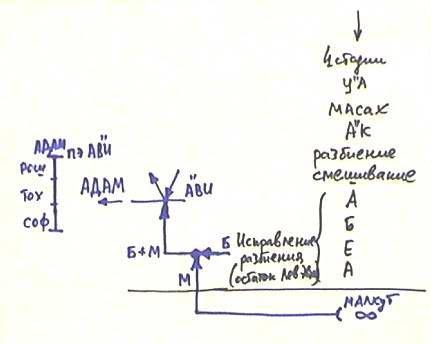 4 стадии
У"А
МАсах
А"К
разбиение
смешивание
А
Б
Е
А
АДАМ
пэ АВИ
Рош
Тох
Соф
АДАМ
АВИ
Б+М
Б
М
Исправление
разбиения
МАЛХУТ
∞